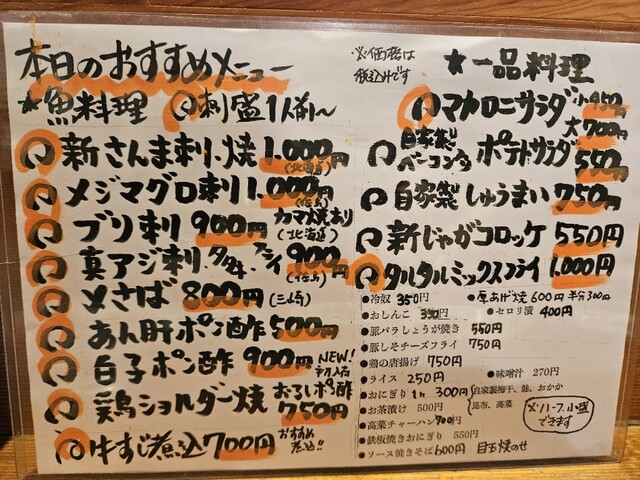 本日のおすすめメニュー
★魚料理 ○刺盛1人前〜
○新さんま刺・焼 1.000円
(北海道)
○メジマグロ刺 1.000円
○ブリ刺 900円 カマ焼あり
(北海道)
○真アジ刺・タタキ・フライ 900円
○〆さば 800円
○あん肝ポン酢 500円
○白子ポン酢 900円 NEW!
○鶏ショルダー焼 おろしポン酢
750円
○牛すじ煮込 700円 おすすめ
煮込!!
※価格は
税込みです
★一品料理
○マカロニサラダ 小450円
大700円
○自家製
ベーコン入り ポテトサラダ
550円
○自家製しゅうまい 750円
○新じゃがコロッケ 550円
○タルタルミックスフライ 1.000円
●冷奴 350円 ●厚あげ焼 600円 半分300円
●おしんこ 350円 ●セロリ漬 400円
●豚バラしょうが焼き 550円
●豚しそチーズフライ 750円
●鶏の唐揚げ 750円
●ライス 250円 ●味噌汁 270円
●おにぎり 1ヶ 300円 自家製梅干、鮭、おかか
昆布、高菜
●お茶漬け 500円
●高菜チャーハン 700円
●鉄板焼きおにぎり 550円
●ソース焼きそば 600円 目玉焼のせ
※ハーフ、小盛
できます